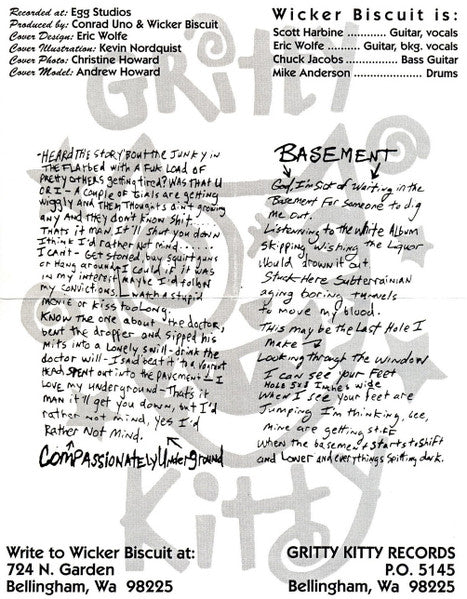 Recorded at: Egg Studios
Produced by: Conrad Uno & Wicker Biscuit
Cover Design: Eric Wolfe
Cover Illustration: Kevin Nordquist
Cover Photo: Christine Howard
Cover Model: Andrew Howard
Wicker Biscuit is:
Scott Harbine ............ Guitar, vocals
Eric Wolfe ....... Guitar, bkg. vocals
Chuck Jacobs ............. Bass Guitar
Mike Anderson .................. Drums
Gritty
-HEARD THE STORY 'BOUT THE JUNKY IN
THE FLATBED WITH A FUK LOAD OF
PRETTY OTHERS getting tired? WAS THAT U
OR I - A couple of Girls are getting
wiggly AND THEM Thoughts ain't growing
any AND They don't know shit..
Thats it man It'll shut you down
I think I'd rather Not mind......
I can't - GET Stoned, buy squirt guns
or Hang around I could if it was
in my interest maybe I'd follow
my convictions, watch a stupid
movie or kiss too long.
KNOW THE ONE about the doctor,
bent the dropper and sipped his
mits into a lonely swill - drink the
doctor will - I said beat it to a vagrant
Head, spent out into the pavement - I
love my underground - Thats it
man it'll get you down, but I'd
rather not mind, yes I'd
Rather Not Mind.
CompassionatelyUnderground
BASEMENT
God, I'm Sick of Waiting in the
Basement For someone to dig
me out.
Listening to the white Album
skipping wishing the Liquor
would drown it out.
Stuck Here Subterrainian
aging boring tunnels
to move my blood.
This may be the Last Hole I
make
Looking through the window
I can see your Feet
Hole 5x8 Inches wide
When I see your feet are
Jumping I'm thinking, gee,
mine are getting stiff
when the basement starts to shift
and Lower and everythings spitting dark.
Kitty
Write to Wicker Biscuit at:
724 N. Garden
Bellingham, Wa 98225
GRITTY KITTY RECORDS
P.O. 5145
Bellingham, Wa 98225